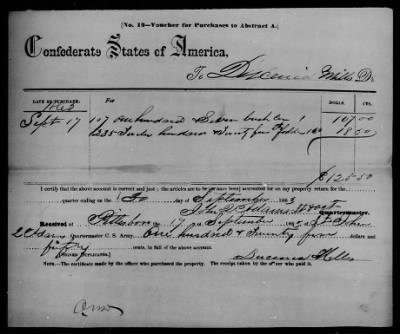 [No. 12—Voucher for Purchases to Abstract A.]
Confederate States of America,
To Ducenia Mills Dr.
DATE OF PURCHASE. For DOLLS. CTS.
1863
Sept 17 107 one hundred & Seven bushels 1 107.00
1235 twelve hundred thirty five 18.50
$125.50
I certify that the above account is correct and just; the articles are to be (have been) accounted for on my property return for the
quarter ending on the 30 day of September 1863
Quartermaster.
Received at Pittsboro 17 September 1863, of John
Quartermaster C. S. Army, One hundred & Twenty five dollars and
fifty cents, in full of the above account.
[SIGNED DUPLICATES.] Ducenia Mills
NOTE.—The certificate made by the officer who purchased the property. The receipt taken by the officer who paid it.